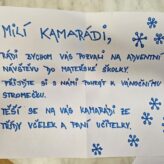 MILÍ KAMARÁDI,
RÁDI BYCHOM VÁS POZVALI NA ADVENTNÍ
NÁVŠTĚVU DO MATEŘSKÉ ŠKOLKY.
PŘIJĎTE SI S NÁMI POHRÁT K VÁNOČNÍMU
STROMEČKU.
TĚŠÍ SE NA VÁS KAMARÁDI ZE
TŘÍDY VČELEK A PANÍ UČITELKY.